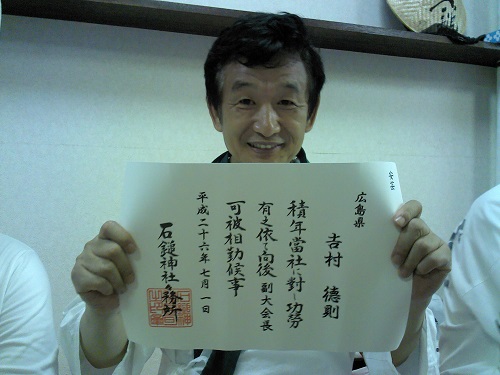 広島県
吉村徳則
積年當社に對し功勞
有之依て向後副大会長
可被相勤候事
平成二十六年七月一日
石鎚神社々務所